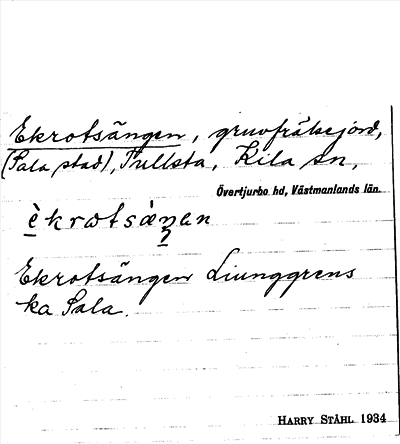 Ekrotsängen, gruvfrälsejord,
(Sala stad), Tullsta, Kila sn,
Övertjurbo hd, Västmanlands län.
èkrωtsàŋən
Ekrotsängen Liunggrens
ka Sala.
HARRY STÅHL 1934